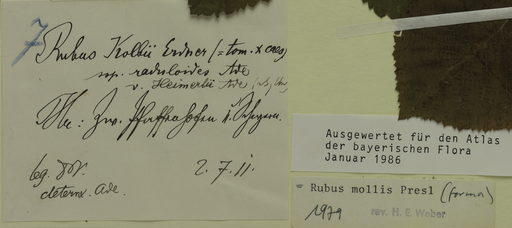 7
Rubus Kolbii Erdner (= tom. x caes)
ssp. raduloides Ade
v. Heimerlii Ade
Zw. Pfaffenhofen &
leg. 2.7.11.
determ. Ade.
Ausgewertet für den Atlas
der bayerischen Flora
Januar 1986
= Rubus mollis Presl (forma)
1979 rev. H. E. Weber